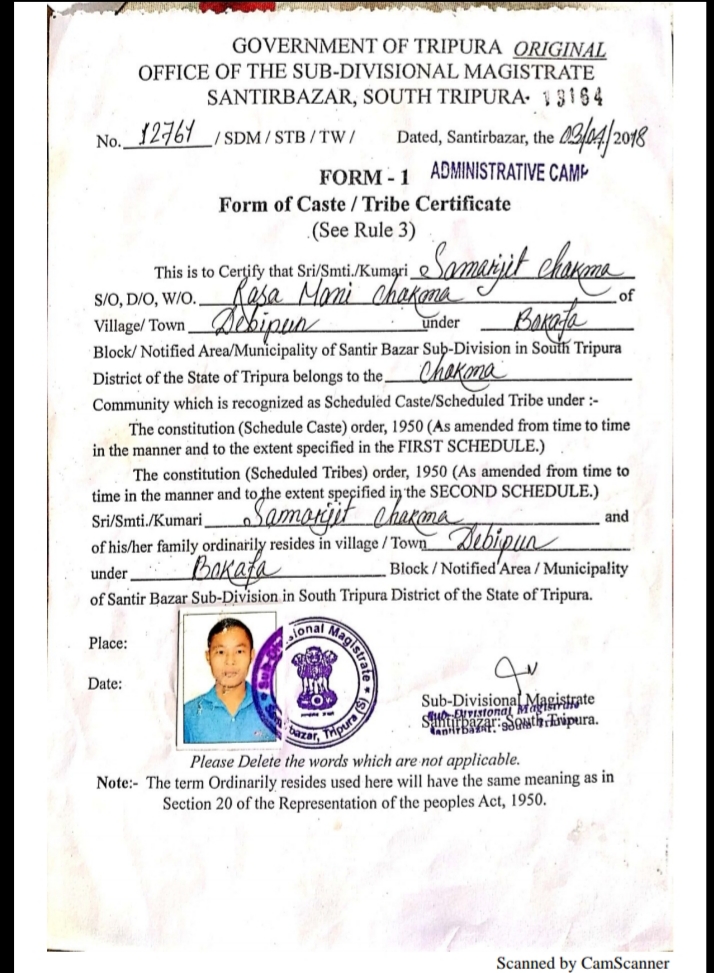 GOVERNMENT OF TRIPURA ORIGINAL
OFFICE OF THE SUB-DIVISIONAL MAGISTRATE
SANTIRBAZAR, SOUTH TRIPURA. 13164
No. 12761 / SDM / STB / TW / Dated, Santirbazar, the 03/04/2018
FORM - 1 ADMINISTRATIVE CAMP
Form of Caste / Tribe Certificate
(See Rule 3)
This is to Certify that Sri/Smti./Kumari Samarjit Chakma
S/O, D/O, W/O. Rasa Moni Chakma of
Village/ Town Debipur under Bokafa
Block/ Notified Area/Municipality of Santir Bazar Sub-Division in South Tripura
District of the State of Tripura belongs to the Chakma
Community which is recognized as Scheduled Caste/Scheduled Tribe under :-
The constitution (Schedule Caste) order, 1950 (As amended from time to time
in the manner and to the extent specified in the FIRST SCHEDULE.)
The constitution (Scheduled Tribes) order, 1950 (As amended from time to
time in the manner and to the extent specified in the SECOND SCHEDULE.)
Sri/Smti./Kumari Samarjit Chakma and
of his/her family ordinarily resides in village / Town Debipur
under Bokafa Block / Notified Area / Municipality
of Santir Bazar Sub-Division in South Tripura District of the State of Tripura.
Place:
Date:
Sub-Divisional Magistrate
bazar, Tripura (S)
Sub-Divisional Magistrate
Sub-Divisional Magistrate
Santirbazar: South Tripura.
Santirbazar: South Tripura.
Please Delete the words which are not applicable.
Note:- The term Ordinarily resides used here will have the same meaning as in
Section 20 of the Representation of the peoples Act, 1950.
Scanned by CamScanner